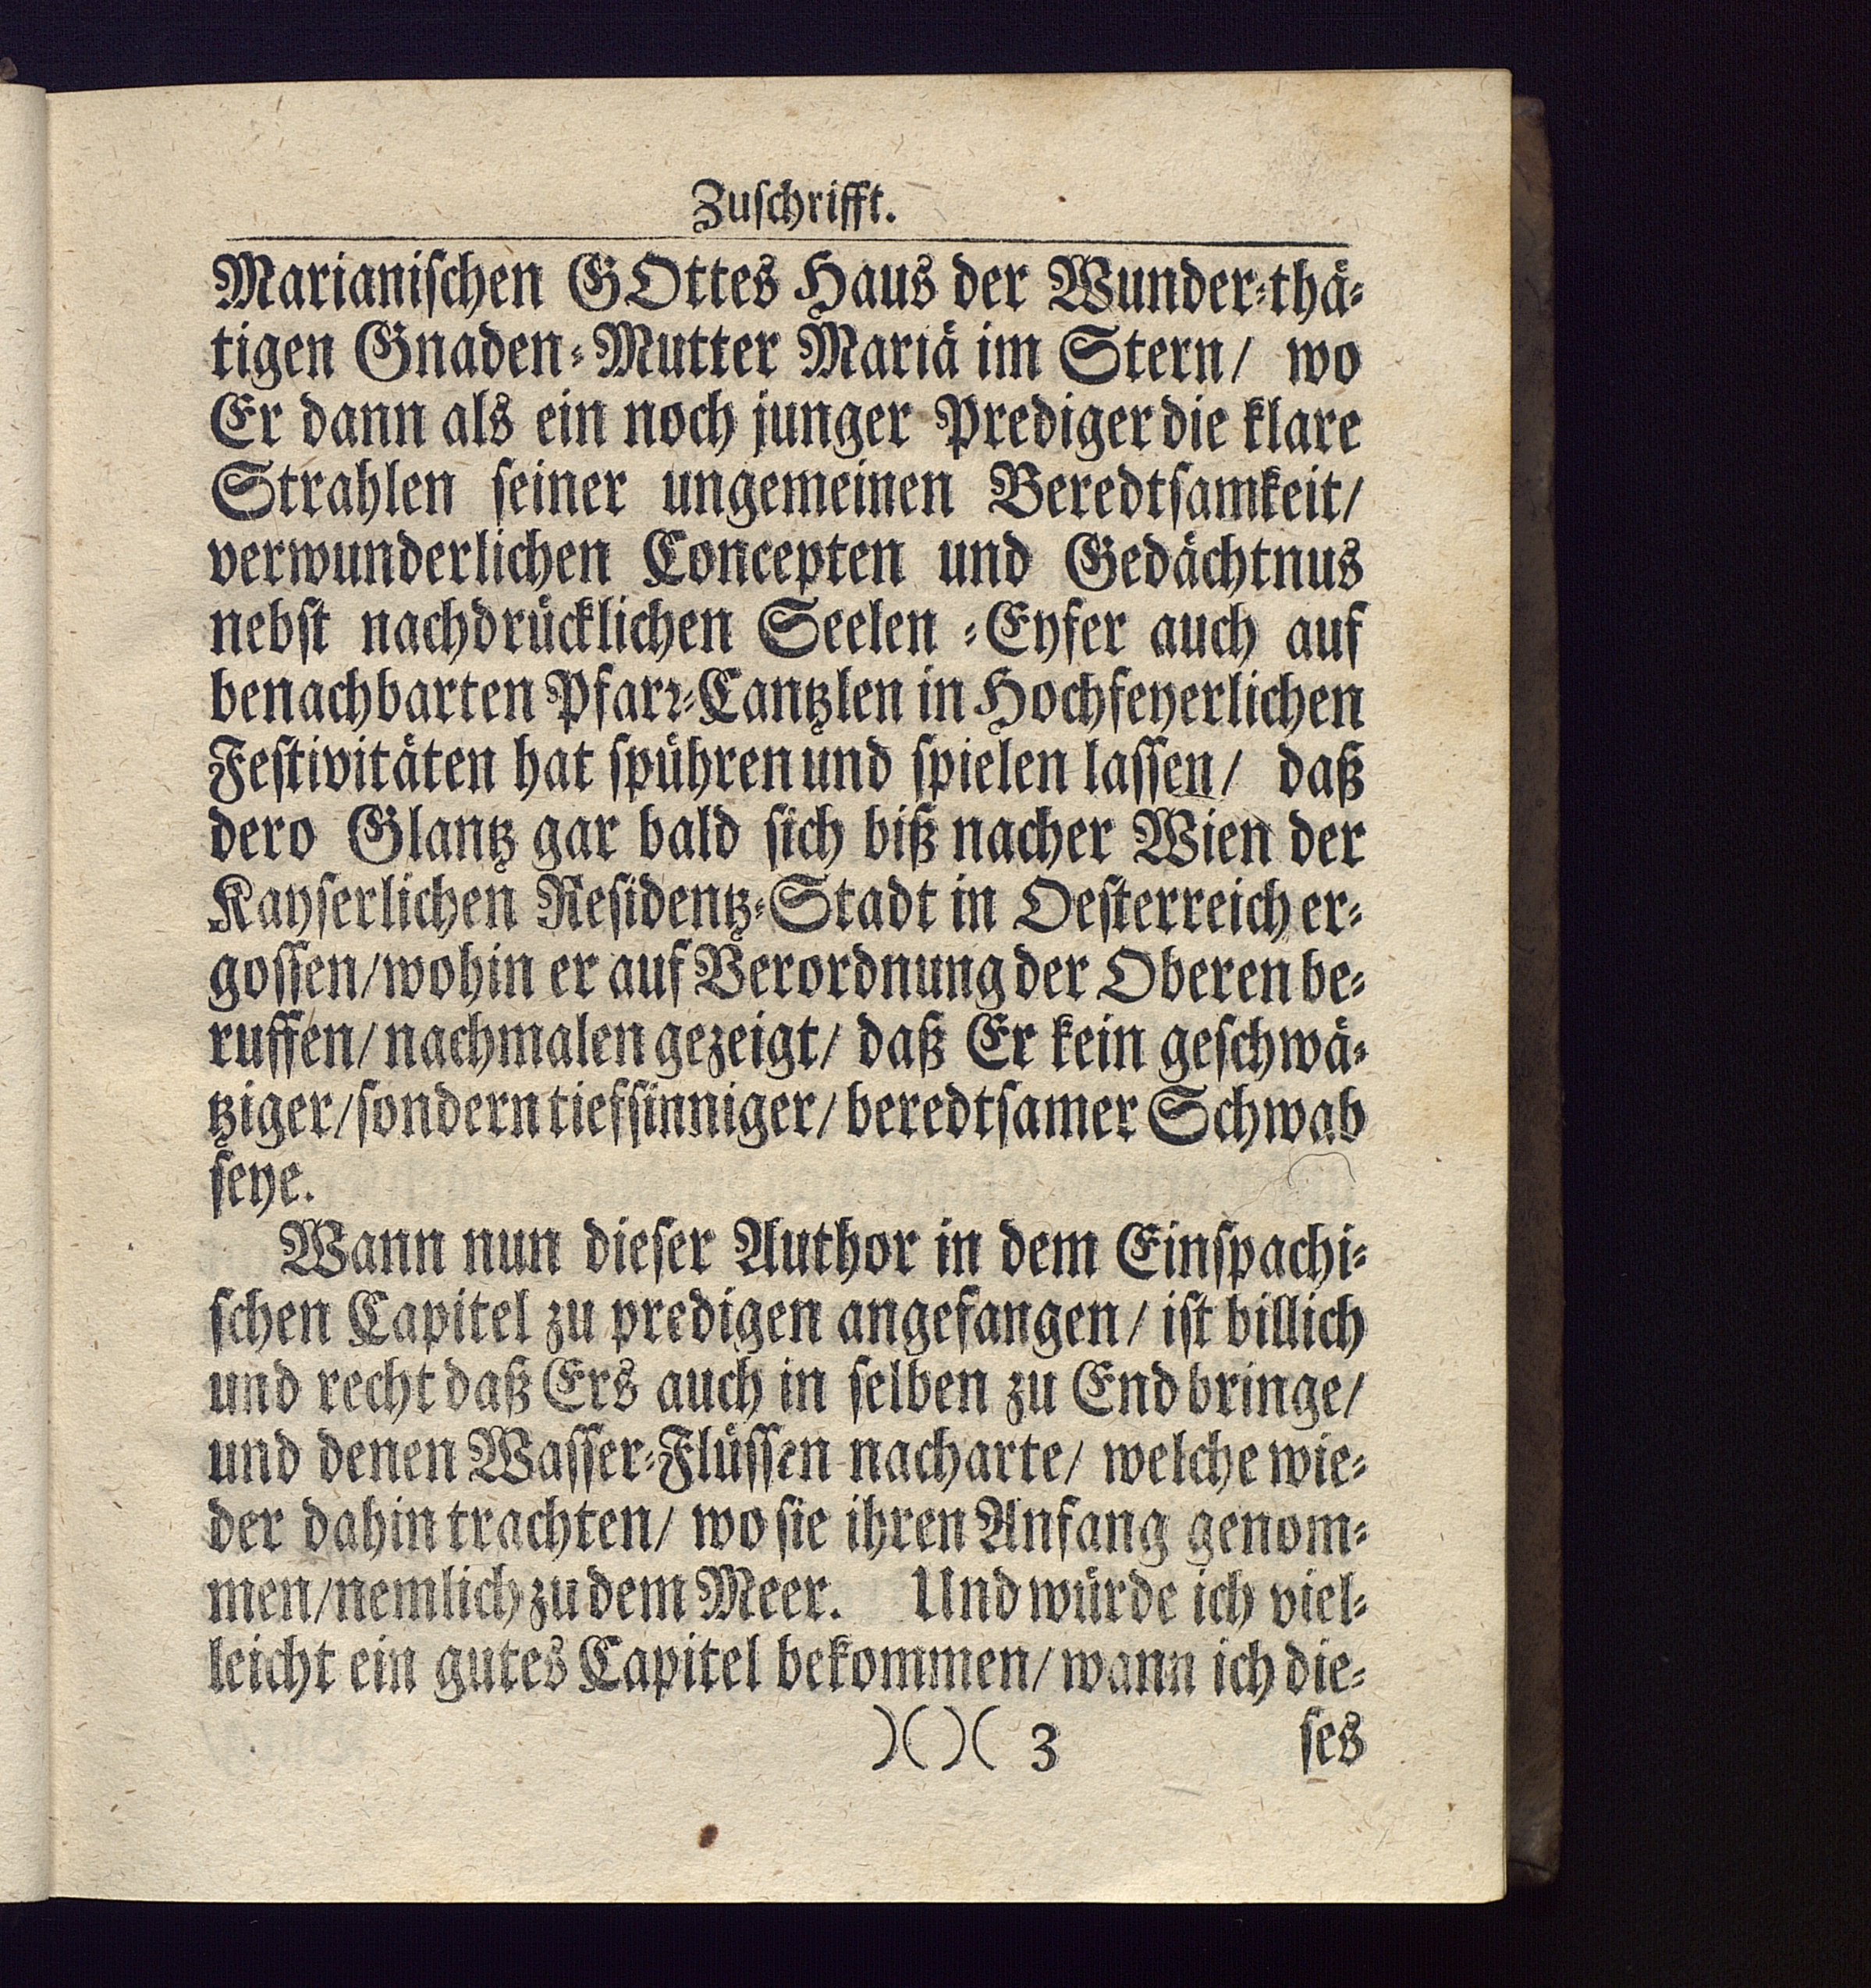 Zuſchrifft.
Marianiſchen GOttes Haus der Wunder⸗thaͤ⸗
tigen Gnaden⸗Mutter Mariaͤ im Stern/ wo
Er dann als ein noch junger Prediger die klare
Strahlen ſeiner ungemeinen Beredtſamkeit/
verwunderlichen Concepten und Gedaͤchtnus
nebſt nachdruͤcklichen Seelen ⸗Eyfer auch auf
benachbarten Pfarꝛ⸗Cantzlen in Hochfeyerlichen
Feſtivitaͤten hat ſpuͤhren und ſpielen laſſen/ daß
dero Glantz gar bald ſich biß nacher Wien der
Kayſerlichen Reſidentz⸗Stadt in Oeſterreich er⸗
goſſen/wohin er auf Verordnung der Oberen be⸗
ruffen/ nachmalen gezeigt/ daß Er kein geſchwaͤ⸗
tziger/ſondern tiefſinniger/ beredtſamer Schwab
ſeye.
Wann nun dieſer Author in dem Einſpachi⸗
ſchen Capitel zu predigen angefangen/ iſt billich
und recht daß Ers auch in ſelben zu End bringe/
und denen Waſſer⸗Fluͤſſen nacharte/ welche wie⸗
der dahin trachten/ wo ſie ihren Anfang genom⸗
men/nemlich zu dem Meer. Und wuͤrde ich viel⸗
leicht ein gutes Capitel bekommen/ wann ich die⸗
)( )( 3 ſes